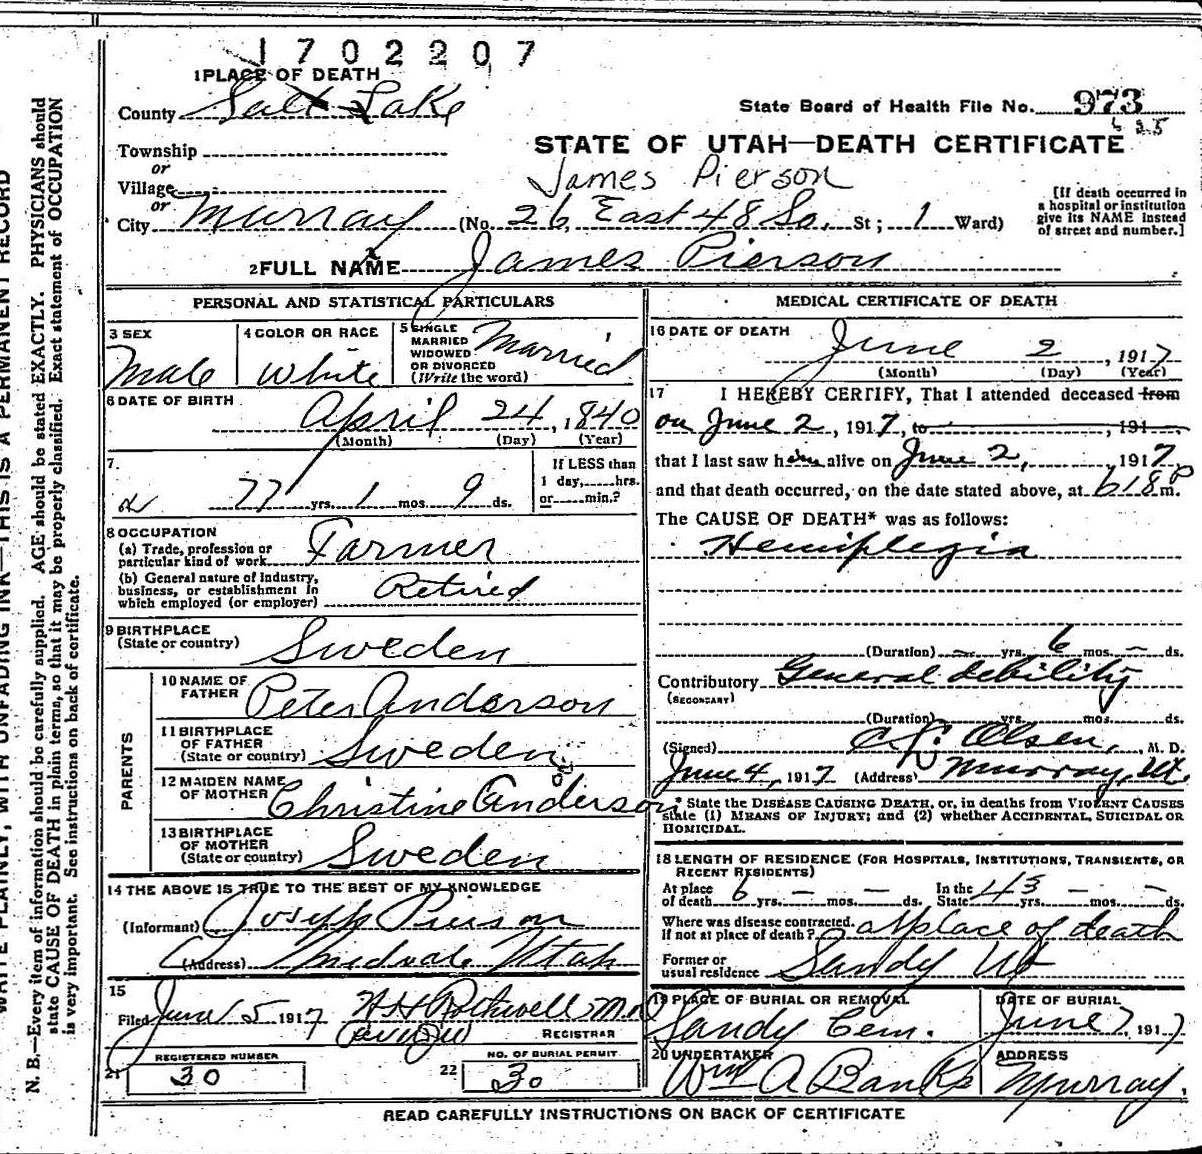 1702207
1 PLACE OF DEATH
County Salt Lake
State Board of Health File No. 973
625
Township
or
Village
or
STATE OF UTAH—DEATH CERTIFICATE
James Pierson
City Murray (No. 26 East 48 So. St; 1 Ward)
[If death occurred in
a hospital or institution
give its NAME instead
of street and number.]
2 FULL NAME James Pierson
PERSONAL AND STATISTICAL PARTICULARS
3 SEX
Male
4 COLOR OR RACE
White
5 SINGLE
MARRIED
WIDOWED
OR DIVORCED
(Write the word)
Married
6 DATE OF BIRTH
April 24, 1840
(Month) (Day) (Year)
7.
77 yrs. 1 mos. 9 ds.
If LESS than
1 day, hrs.
or min.?
8 OCCUPATION
(a) Trade, profession or
particular kind of work
Farmer
(b) General nature of Industry,
business, or establishment in
which employed (or employer)
Retired
9 BIRTHPLACE
(State or country)
Sweden
PARENTS
10 NAME OF
FATHER
Peter Anderson
11 BIRTHPLACE
OF FATHER
(State or country)
Sweden
12 MAIDEN NAME
OF MOTHER
Christine Anderson
13 BIRTHPLACE
OF MOTHER
(State or country)
Sweden
14 THE ABOVE IS TRUE TO THE BEST OF MY KNOWLEDGE
(Informant) Joseph Pierson
(Address) Midvale Utah
15
Filed June 5 1917 H H Rothwell M.D.
REGISTRAR
REGISTERED NUMBER
21 30
NO. OF BURIAL PERMIT
22 30
MEDICAL CERTIFICATE OF DEATH
16 DATE OF DEATH
June 2, 1917
(Month) (Day) (Year)
17 I HEREBY CERTIFY, That I attended deceased from
on June 2, 1917, to , 191
that I last saw him alive on June 2, 1917
and that death occurred, on the date stated above, at 618 P m.
The CAUSE OF DEATH* was as follows:
Hemiplegia
(Duration) — yrs. 6 mos. — ds.
Contributory General debility
(SECONDARY)
(Duration) yrs. mos. ds.
(Signed) C. L. Olsen, M. D.
June 4, 1917 (Address) Murray, Ut.
* State the DISEASE CAUSING DEATH, or, in deaths from VIOLENT CAUSES
state (1) MEANS OF INJURY; and (2) whether ACCIDENTAL, SUICIDAL OR
HOMICIDAL.
18 LENGTH OF RESIDENCE (FOR HOSPITALS, INSTITUTIONS, TRANSIENTS, OR
RECENT RESIDENTS)
At place
of death 6 yrs. — mos. — ds.
In the
State 43 yrs. — mos. — ds.
Where was disease contracted.
If not at place of death? at place of death
Former or
usual residence Sandy Ut
19 PLACE OF BURIAL OR REMOVAL
Sandy Cem.
DATE OF BURIAL
June 7, 1917
20 UNDERTAKER
Wm A Banks
ADDRESS
Murray.
READ CAREFULLY INSTRUCTIONS ON BACK OF CERTIFICATE
WRITE PLAINLY, WITH UNFADING INK—THIS IS A PERMANENT RECORD
N. B.—Every item of information should be carefully supplied. AGE should be stated EXACTLY. PHYSICIANS should
state CAUSE OF DEATH in plain terms, so that it may be properly classified. Exact statement of OCCUPATION
is very important. See instructions on back of certificate.